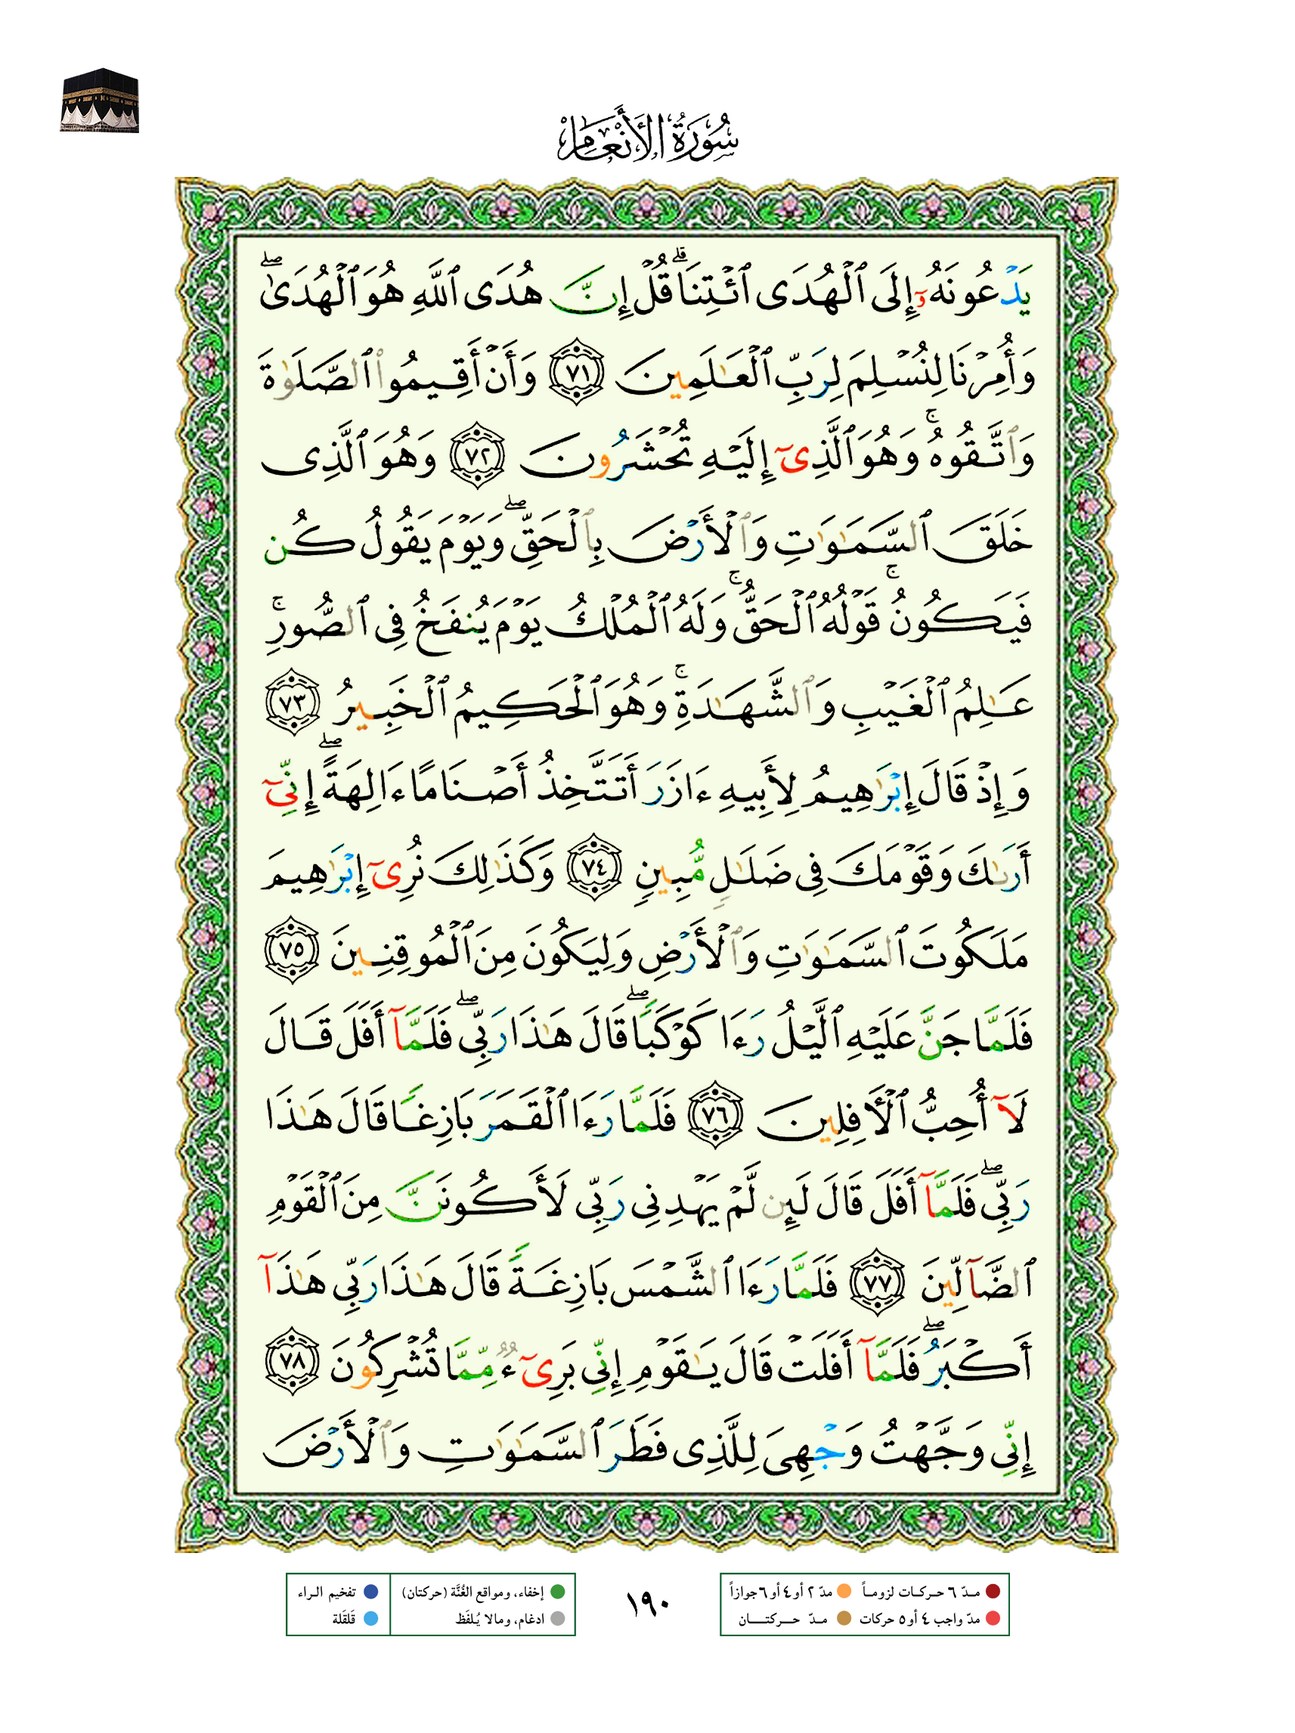 سُورَةُ الأَنْعَامِ
يَدْعُونَهُۥٓ إِلَى ٱلْهُدَى ٱئْتِنَا ۗ قُلْ إِنَّ هُدَى ٱللَّهِ هُوَ ٱلْهُدَىٰ ۖ
وَأُمِرْنَا لِنُسْلِمَ لِرَبِّ ٱلْعَـٰلَمِينَ ٧١ وَأَنْ أَقِيمُوا۟ ٱلصَّلَوٰةَ
وَٱتَّقُوهُ ۚ وَهُوَ ٱلَّذِىٓ إِلَيْهِ تُحْشَرُونَ ٧٢ وَهُوَ ٱلَّذِى
خَلَقَ ٱلسَّمَـٰوَٰتِ وَٱلْأَرْضَ بِٱلْحَقِّ ۖ وَيَوْمَ يَقُولُ كُن
فَيَكُونُ ۚ قَوْلُهُ ٱلْحَقُّ ۚ وَلَهُ ٱلْمُلْكُ يَوْمَ يُنفَخُ فِى ٱلصُّورِ ۚ
عَـٰلِمُ ٱلْغَيْبِ وَٱلشَّهَـٰدَةِ ۚ وَهُوَ ٱلْحَكِيمُ ٱلْخَبِيرُ ٧٣
وَإِذْ قَالَ إِبْرَٰهِيمُ لِأَبِيهِ ءَازَرَ أَتَتَّخِذُ أَصْنَامًا ءَالِهَةً ۖ إِنِّىٓ
أَرَىٰكَ وَقَوْمَكَ فِى ضَلَـٰلٍ مُّبِينٍ ٧٤ وَكَذَٰلِكَ نُرِىٓ إِبْرَٰهِيمَ
مَلَكُوتَ ٱلسَّمَـٰوَٰتِ وَٱلْأَرْضِ وَلِيَكُونَ مِنَ ٱلْمُوقِنِينَ ٧٥
فَلَمَّا جَنَّ عَلَيْهِ ٱلَّيْلُ رَءَا كَوْكَبًا ۖ قَالَ هَـٰذَا رَبِّى ۖ فَلَمَّآ أَفَلَ قَالَ
لَآ أُحِبُّ ٱلْـَٔافِلِينَ ٧٦ فَلَمَّا رَءَا ٱلْقَمَرَ بَازِغًا قَالَ هَـٰذَا
رَبِّى ۖ فَلَمَّآ أَفَلَ قَالَ لَئِن لَّمْ يَهْدِنِى رَبِّى لَأَكُونَنَّ مِنَ ٱلْقَوْمِ
ٱلضَّآلِّينَ ٧٧ فَلَمَّا رَءَا ٱلشَّمْسَ بَازِغَةً قَالَ هَـٰذَا رَبِّى هَـٰذَآ
أَكْبَرُ ۖ فَلَمَّآ أَفَلَتْ قَالَ يَـٰقَوْمِ إِنِّى بَرِىٓءٌ مِّمَّا تُشْرِكُونَ ٧٨
إِنِّى وَجَّهْتُ وَجْهِىَ لِلَّذِى فَطَرَ ٱلسَّمَـٰوَٰتِ وَٱلْأَرْضَ
مدّ ٦ حركات لزوماً مدّ ٢ أو ٤ أو ٦ جوازاً
مدّ واجب ٤ أو ٥ حركات مدّ حركتان
١٩٠
إخفاء، ومواقع الغُنَّة (حركتان) تفخيم الراء
ادغام، ومالا يُلفَظ قلقلة